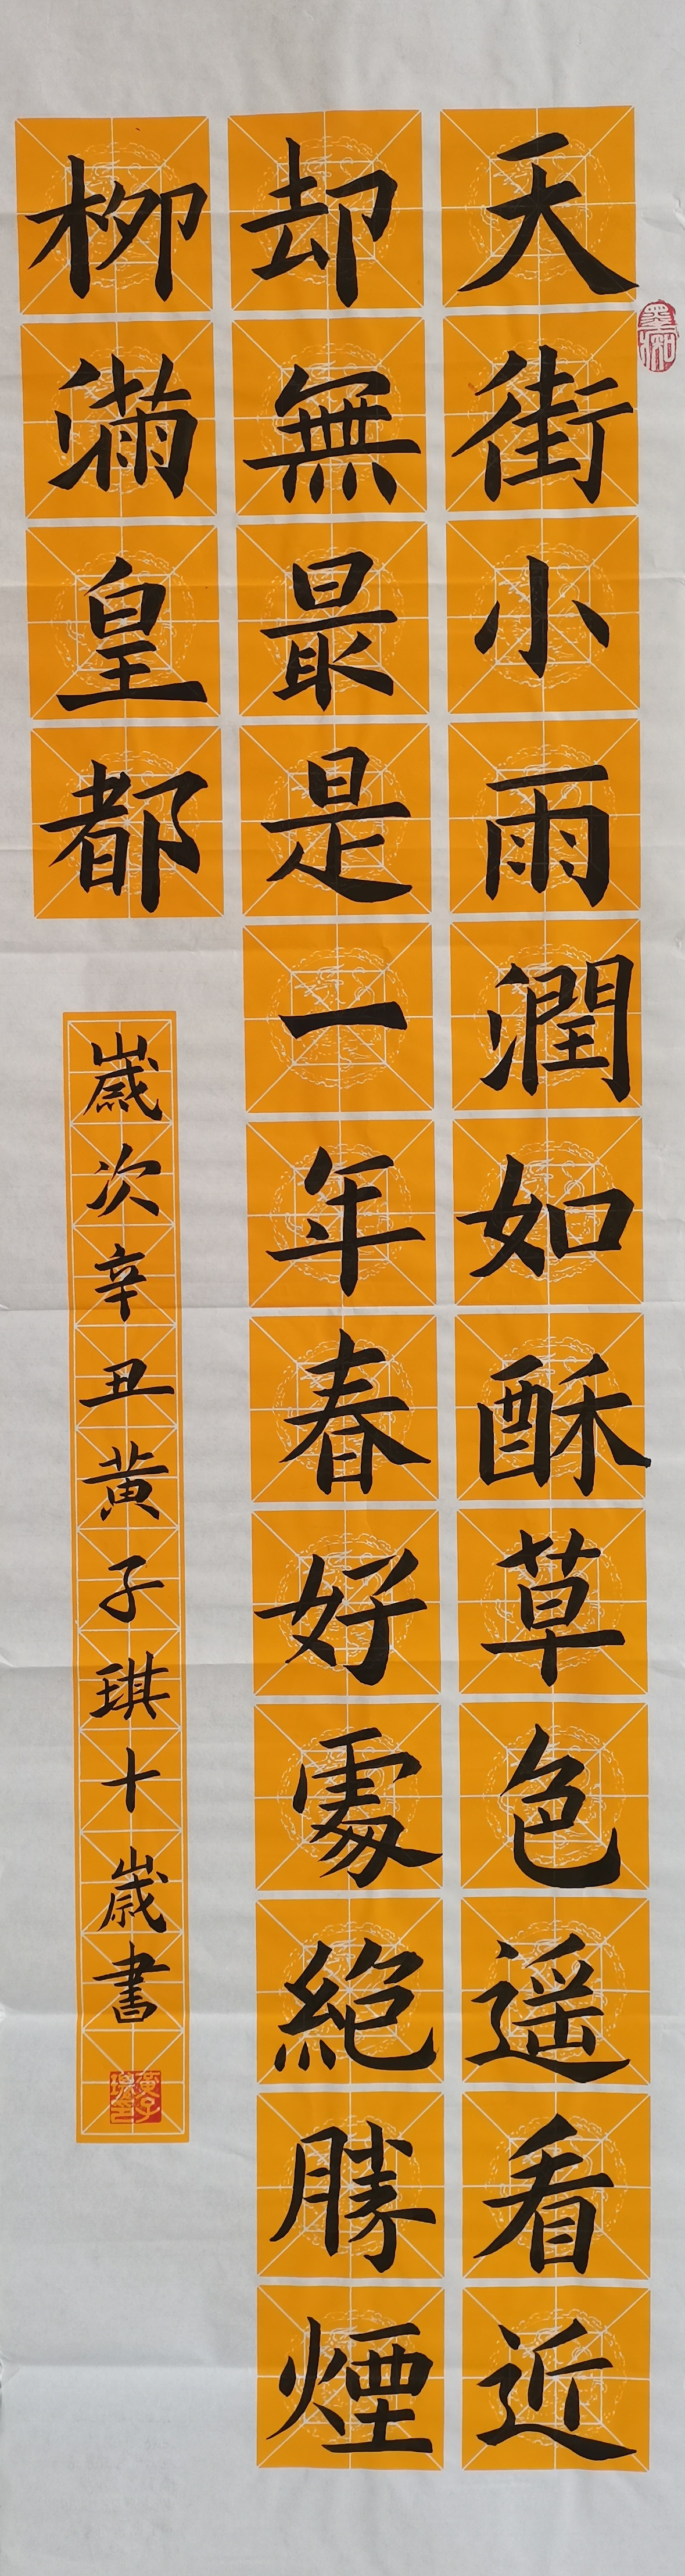 天街小雨潤如酥草色遥看近
却無最是一年春好處絶勝煙
柳滿皇都
歲次辛丑黄子琪十歲書